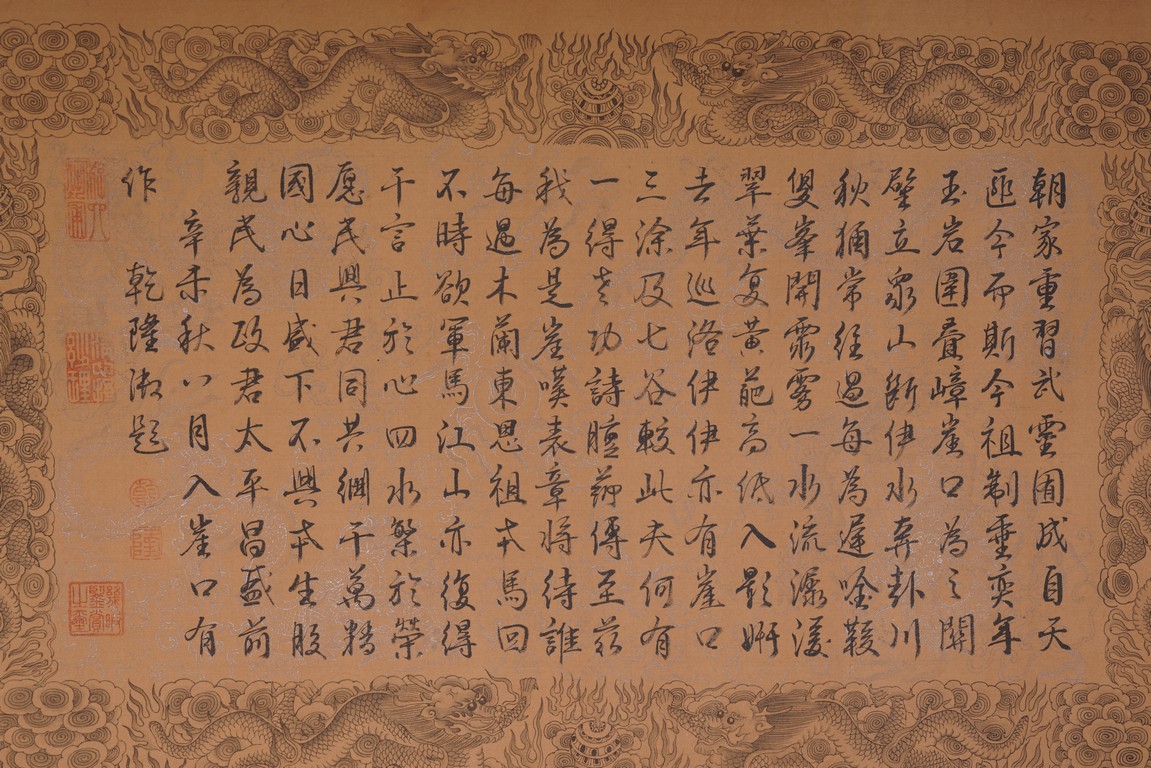 朝家重習武靈囿成自天
匪今而斯今祖制垂奕年
玉岩圍疊嶂崖口為之關
壁立衆山斷伊水奔赴川
狄猶常經過每為遲吟鞍
雙峯開霧雾一水流潺湲
翠葉复黃葩高低入影妍
去年巡洛伊伊亦有崖口
三涂及七谷較此夫何有
一得老功詩膻薌傳至茲
我為是崖嘆表章將待誰
每過木蘭東思祖本馬回
不時欲軍馬江山亦復得
千言止於心四水繁於榮
愿民興君同共綱千萬精
國心日盛下不興本生股
親民為政君太平昌盛前
辛未秋八月入崖口有
作 乾隆御題
乾
隆